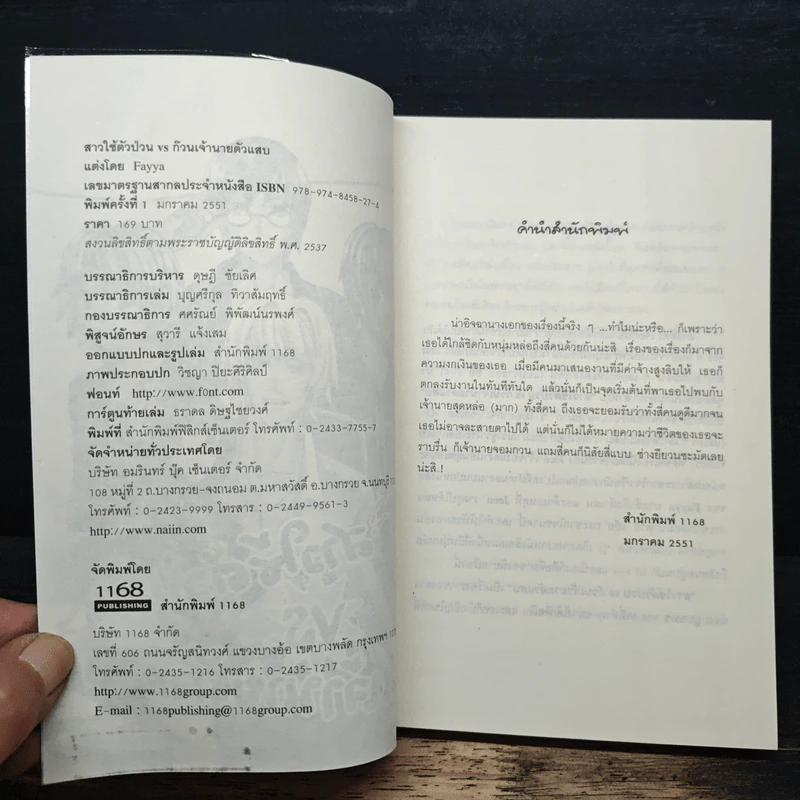 สาวใช้ตัวป่วน vs ก๊วนเจ้านายตัวแสบ
แต่งโดย Fayya
เลขมาตรฐานสากลประจำหนังสือ ISBN 978-974-8458-27-4
พิมพ์ครั้งที่ 1 มกราคม 2551
ราคา 169 บาท
สงวนลิขสิทธิ์ตามพระราชบัญญัติลิขสิทธิ์ พ.ศ. 2537
บรรณาธิการบริหาร ดุษฎี ชัยเลิศ
บรรณาธิการเล่ม บุญศรีกุล ทิวาสัมฤทธิ์
กองบรรณาธิการ ศศรัณย์ พิพัฒน์นรพงศ์
พิสูจน์อักษร สุวารี แจ้งเสม
ออกแบบปกและรูปเล่ม สำนักพิมพ์ 1168
ภาพประกอบปก วิชญา ปิยะศิริศิลป์
ฟอนท์ http://www.font.com
การ์ตูนท้ายเล่ม ธราดล ดิษฐไชยวงศ์
พิมพ์ที่ สำนักพิมพ์ฟิสิกส์เซ็นเตอร์ โทรศัพท์ : 0-2433-7755-7
จัดจำหน่ายทั่วประเทศโดย
บริษัท อมรินทร์ บุ๊ค เซ็นเตอร์ จำกัด
108 หมู่ที่ 2 ถ.บางกรวย-จงถนอม ต.มหาสวัสดิ์ อ.บางกรวย จ.นนทบุรี
โทรศัพท์ : 0-2423-9999 โทรสาร : 0-2449-9561-3
http://www.naiin.com
จัดพิมพ์โดย
1168
PUBLISHING สำนักพิมพ์ 1168
บริษัท 1168 จำกัด
เลขที่ 606 ถนนจรัญสนิทวงศ์ แขวงบางอ้อ เขตบางพลัด กรุงเทพฯ
โทรศัพท์ : 0-2435-1216 โทรสาร : 0-2435-1217
http://www.1168group.com
E-mail : 1168publishing@1168group.com
คำนำสำนักพิมพ์
น่าอิจฉานางเอกของเรื่องนี้จริง ๆ ...ทำไมน่ะหรือ... ก็เพราะว่า
เธอได้ใกล้ชิดกับหนุ่มหล่อถึงสี่คนด้วยกันน่ะสิ เรื่องของเรื่องก็มาจาก
ความงกเงินของเธอ เมื่อมีคนมาเสนองานที่มีค่าจ้างสูงลิบให้ เธอก็
ตกลงรับงานในทันทีทันใด แล้วนั่นก็เป็นจุดเริ่มต้นที่พาเธอไปพบกับ
เจ้านายสุดหล่อ (มาก) ทั้งสี่คน ถึงเธอจะยอมรับว่าทั้งสี่คนดูดีมากจน
เธอไม่อาจละสายตาไปได้ แต่นั่นก็ไม่ได้หมายความว่าชีวิตของเธอจะ
ราบรื่น ก็เจ้านายจอมกวน แถมสี่คนก็นิสัยสี่แบบ ช่างยียวนซะมัดเลย
น่ะสิ!
สำนักพิมพ์ 1168
มกราคม 2551